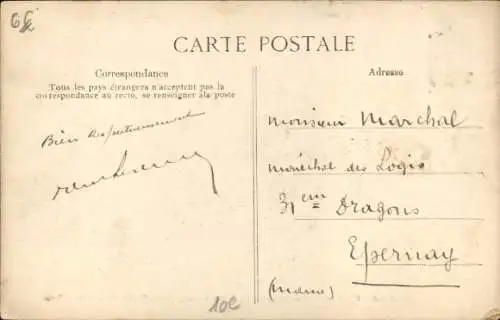 CARTE POSTALE
Correspondance
Tous les pays étrangers n'acceptent pas la
correspondance au recto, se renseigner à la poste
Adresse
Bien respectueusement
Monsieur Marchal
Maréchal des Logis
31em Dragons
Epernay
(Marne)
10E